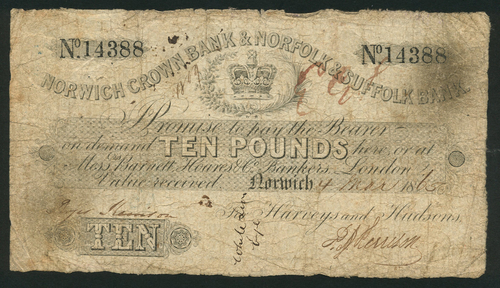 No. 14388 No. 14388
NORWICH CROWN BANK & NORFOLK & SUFFOLK BANK.
I Promise to pay the Bearer
on demand TEN POUNDS here, or at
Messrs. Barnett, Hoares & Co. Bankers, London
Value received Norwich 4 Mar 186
For Harveys and Hudsons,
TEN